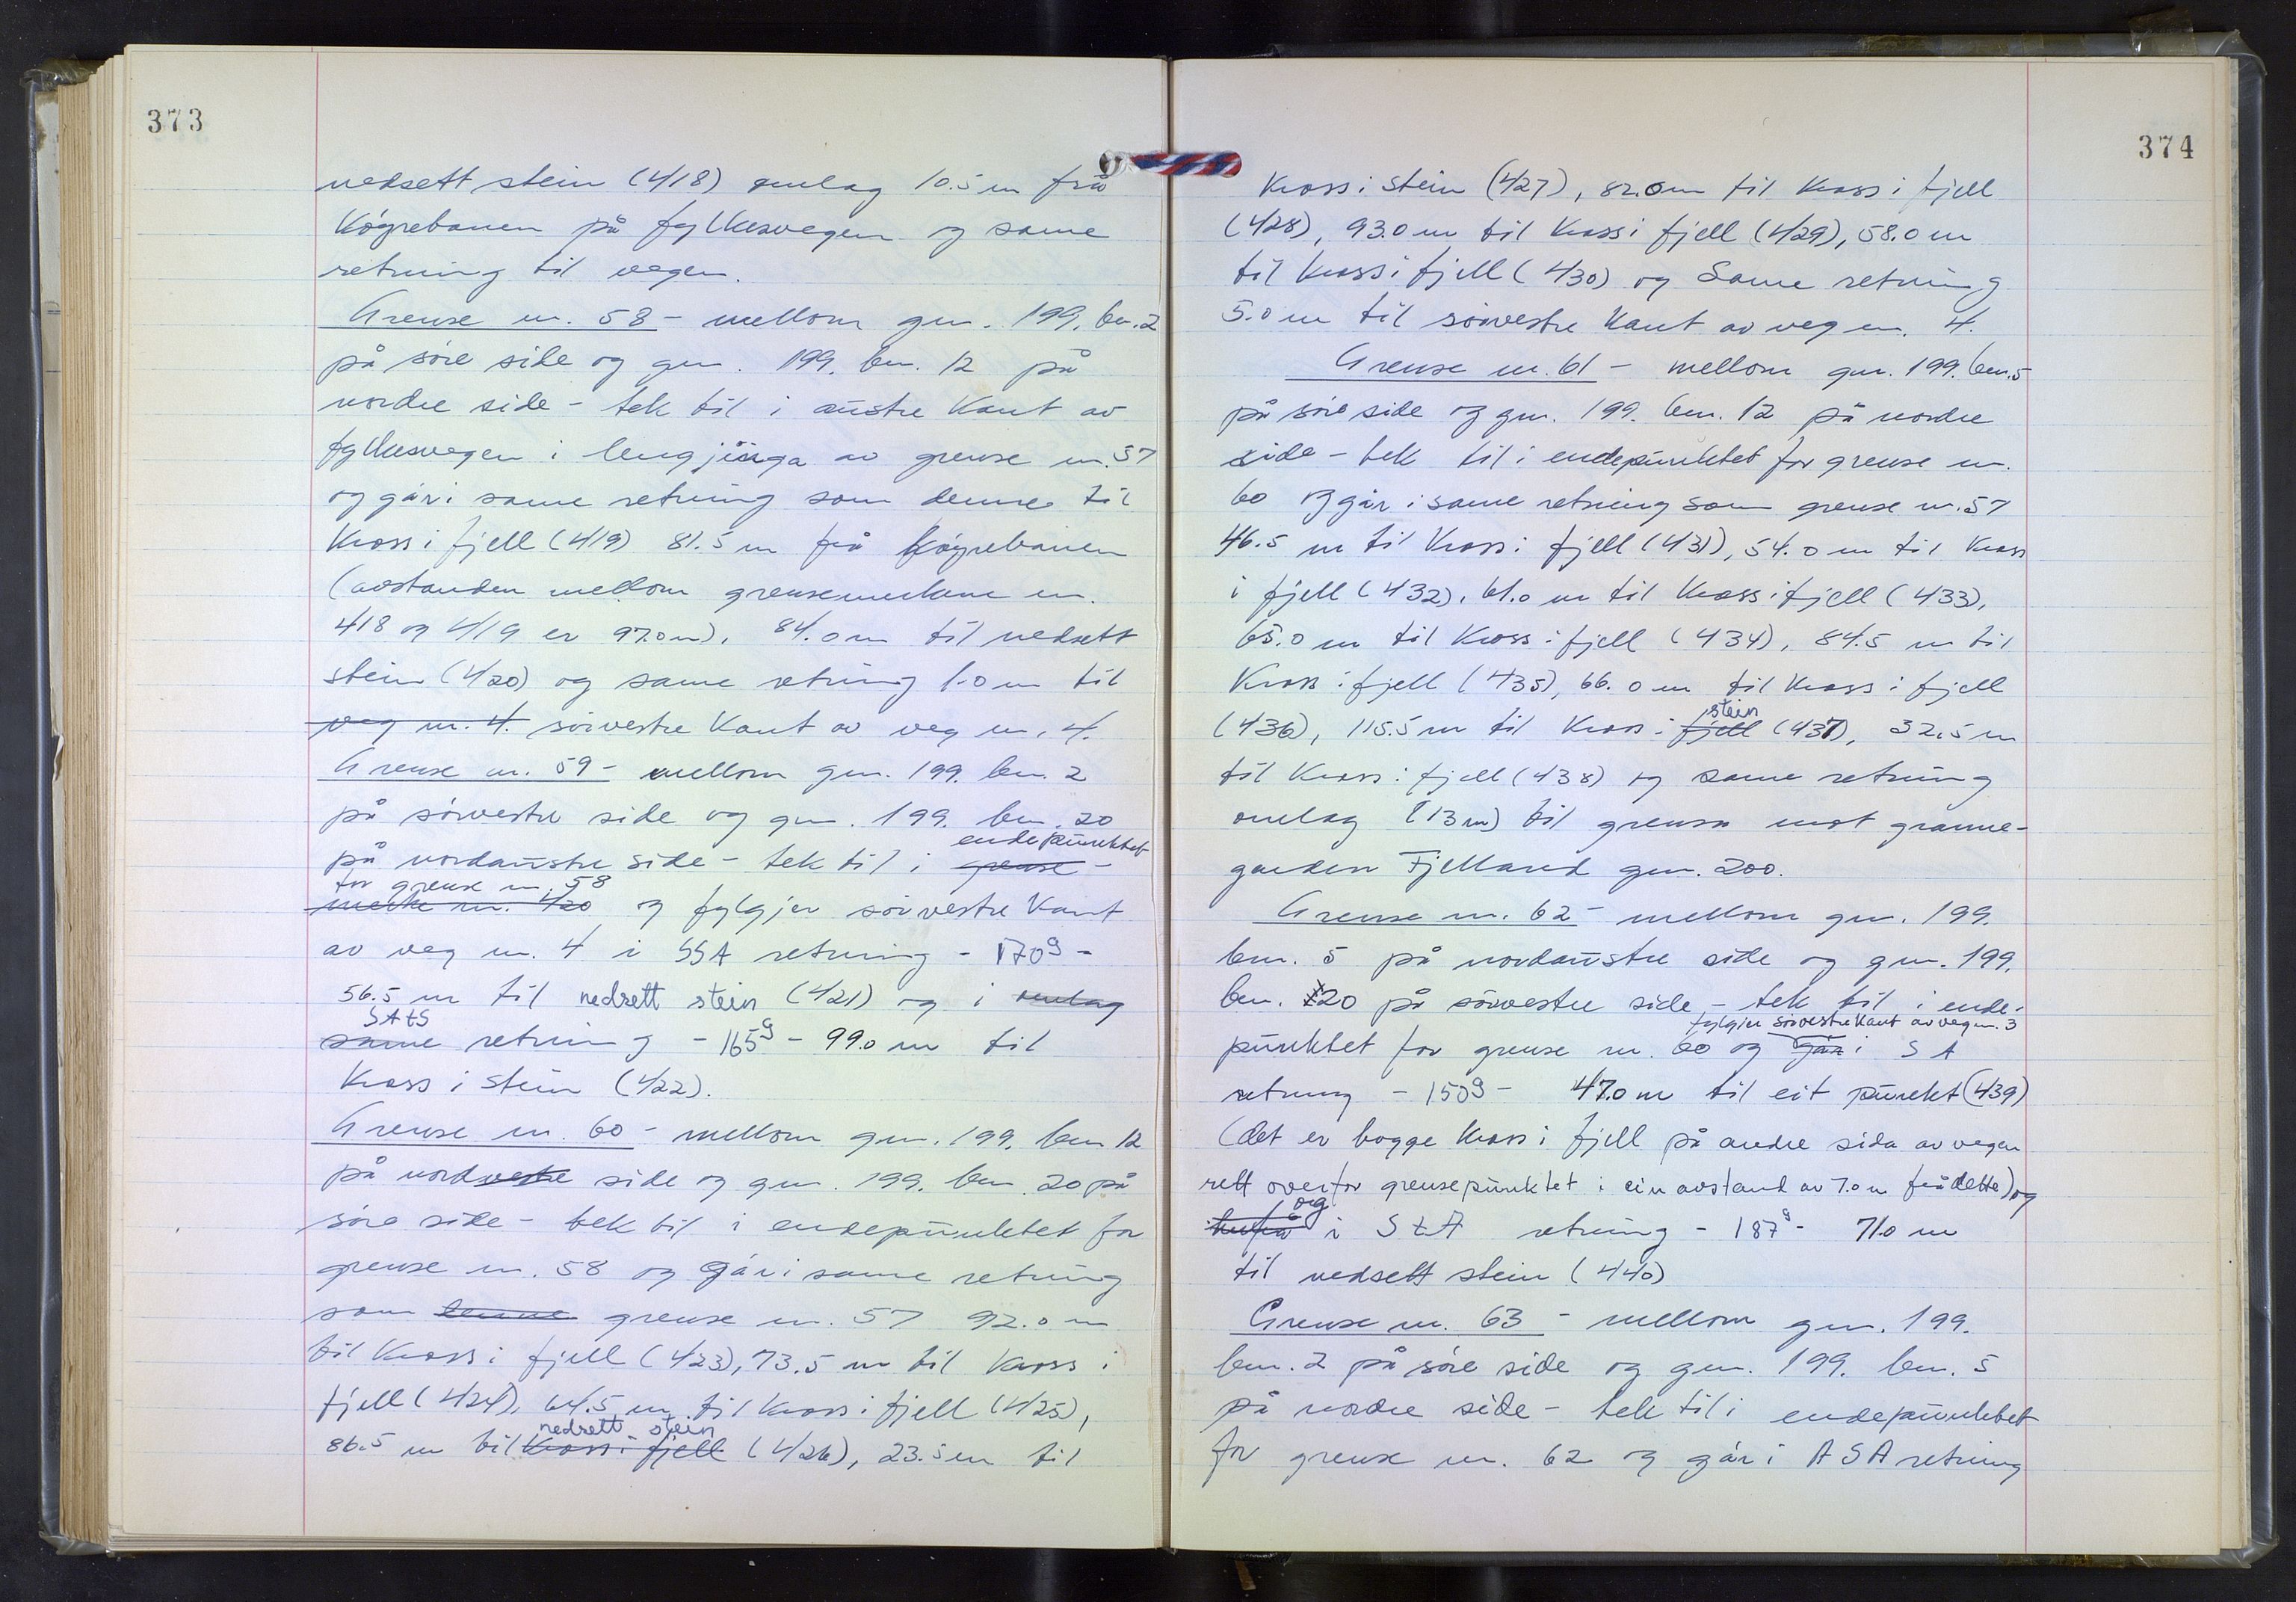 373
nedsett stein (418) omlag 10.5 m frå
køyrebanen på fylkesvegen og same
retning til vegen.
Grense nr. 58 - mellom gnr. 199. bnr. 2
på søre side og gnr. 199. bnr. 12 på
nordre side - tek til i austre kant av
fylkesvegen i lengjinga av grense nr. 57
og går i same retning som denne til
kross i fjell (419) 81.5 m frå køyrebanen
(avstanden mellom grensemerkene nr.
418 og 419 er 97.0 m). 84.0 m til nedsett
stein (420) og same retning 1.0 m til
veg nr. 4. sørvestre kant av veg nr. 4.
Grense nr. 59 - mellom gnr. 199. bnr. 2
på sørvestre side og gnr. 199. bnr. 20
endepunktet
på nordaustre side - tek til i grense-
for grense nr. 58
merke nr. 420 og fylgjer sørvestre kant
av veg nr. 4 i SSA retning - 170g -
56.5 m til nedsett stein (421) og i omlag
SAtS
same retning - 165g - 99.0 m til
kross i stein (422).
Grense nr. 60 - mellom gnr. 199. bnr 12
på nordvestre side og gnr. 199. bnr. 20 på
søre side - tek til i endepunktet for
grense nr. 58 og går i same retning
som denne grense nr. 57 92.0 m
til kross i fjell (423), 73.5 m til kross i
fjell (424), 64.5 m til kross i fjell (425),
nedsett stein
86.5 m til kross i fjell (426), 23.5 m til
374
kross i stein (427), 82.0 m til kross i fjell
(428), 93.0 m til kross i fjell (429), 58.0 m
til kross i fjell (430) og same retning
5.0 m til sørvestre kant av veg nr. 4.
Grense nr. 61 - mellom gnr. 199. bnr. 5
på søre side og gnr. 199. bnr. 12 på nordre
side - tek til i endepunktet for grense nr.
60 og går i same retning som grense nr. 57
46.5 m til kross i fjell (431), 54.0 m til kross
i fjell (432), 61.0 m til kross i fjell (433),
65.0 m til kross i fjell (434), 84.5 m til
kross i fjell (435), 66.0 m til kross i fjell
stein
(436), 115.5 m til kross i fjell (437), 32.5 m
til kross i fjell (438) og same retning
omlag (13 m) til grensa mot granne-
garden Fjelland gnr. 200.
Grense nr. 62 - mellom gnr. 199.
bnr. 5 på nordaustre side og gnr. 199.
bnr. 20 på sørvestre side - tek til i ende-
fylgjer sørvestre kant av veg nr. 3
punktet for grense nr. 60 og går i SA
retning - 150g - 47.0 m til eit punkt (439)
(det er hogge kross i fjell på andre sida av vegen
rett overfor grensepunktet i ein avstand av 7.0 m frå dette) og
og
herfrå i StA retning - 187g - 71.0 m
til nedsett stein (440)
Grense nr. 63 - mellom gnr. 199.
bnr. 2 på søre side og gnr. 199. bnr. 5
på nordre side - tek til i endepunktet
for grense nr. 62 og går i ASA retning